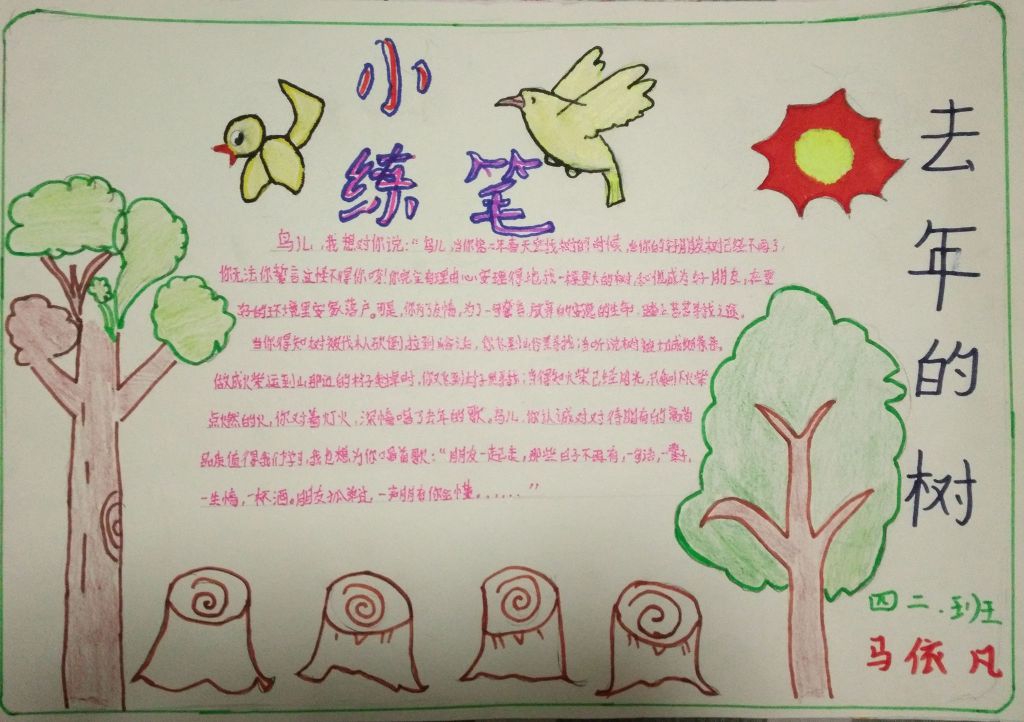 小
练笔
去年的树
鸟儿,我想对你说:“鸟儿,当你第二年春天去找树的时候,当你的好朋友树已经不再了,
你无法你誓言这怪不得你呀!你完全有理由心安理得地找一棵更大的树,和他成为好朋友,在更
好的环境里安家落户。可是,你为了友情,为了一句誓言,放弃的安逸的生命,踏上苦苦寻找之途。
当你得知树被伐木人砍倒,拉到山谷后,你飞到山谷里寻找;当听说树被切成细条条。
做成火柴运到山那边的村子卖掉时,你又飞到村子里寻找;当得知火柴已经用光,只剩下火柴
点燃的火,你对着灯火,深情唱了去年的歌。鸟儿,你认诚对对待朋有的高尚
品质值得我们学习,我也想为你唱首歌:“朋友一起走,那些日子不再有,一句话,一辈子,
一生情,一杯酒。朋友不孤单过,一声朋有你会懂。......”
四二.班
马依凡